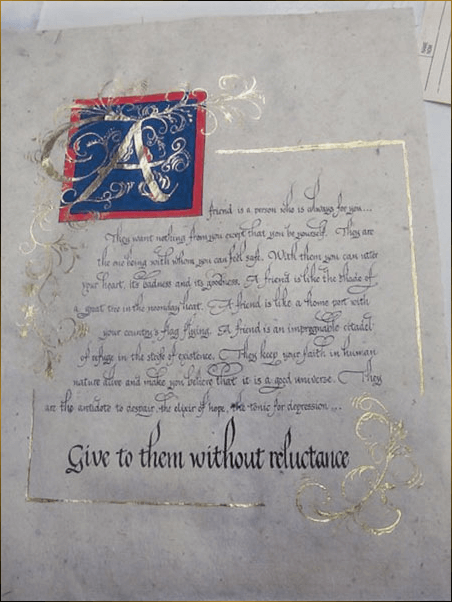 A
friend is a person who is always for you...
They want nothing from you except that you be yourself. They are
the one being with whom you can feel safe. With them you can utter
your heart, its badness and its goodness. A friend is like the shade of
a great tree in the noonday heat. A friend is like a home port with
your country's flag flying. A friend is an impregnable citadel
of refuge in the strife of existence. They keep your faith in human
nature alive and make you believe that it is a good universe. They
are the antidote to despair, the elixir of hope, the tonic for depression...
Give to them without reluctance